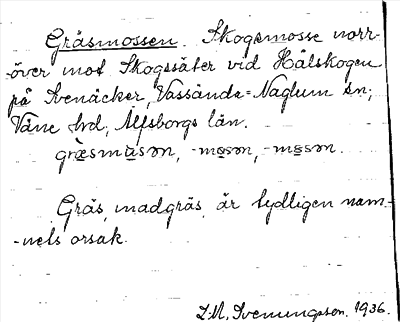 Gräsmossen. Skogsmosse norr-
över mot Skogssäter vid Hälskogen
på Svenäcker, Vassända-Naglum sn;
Väne hrd, Älfsborgs län.
græsmåsən, -mosən, -mɷsən.
Gräs, madgräs, är tydligen nam-
-nets orsak.
I.M. Svenungsson. 1936.